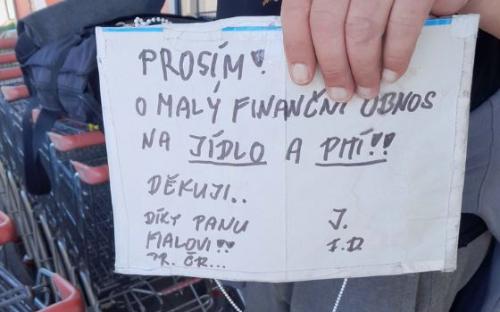 PROSÍM!
O MALÝ FINANČNÍ OBNOS
NA JÍDLO A PITÍ!!
DĚKUJI..
DÍKY PANU J.
FIALOVI!!
ČR...